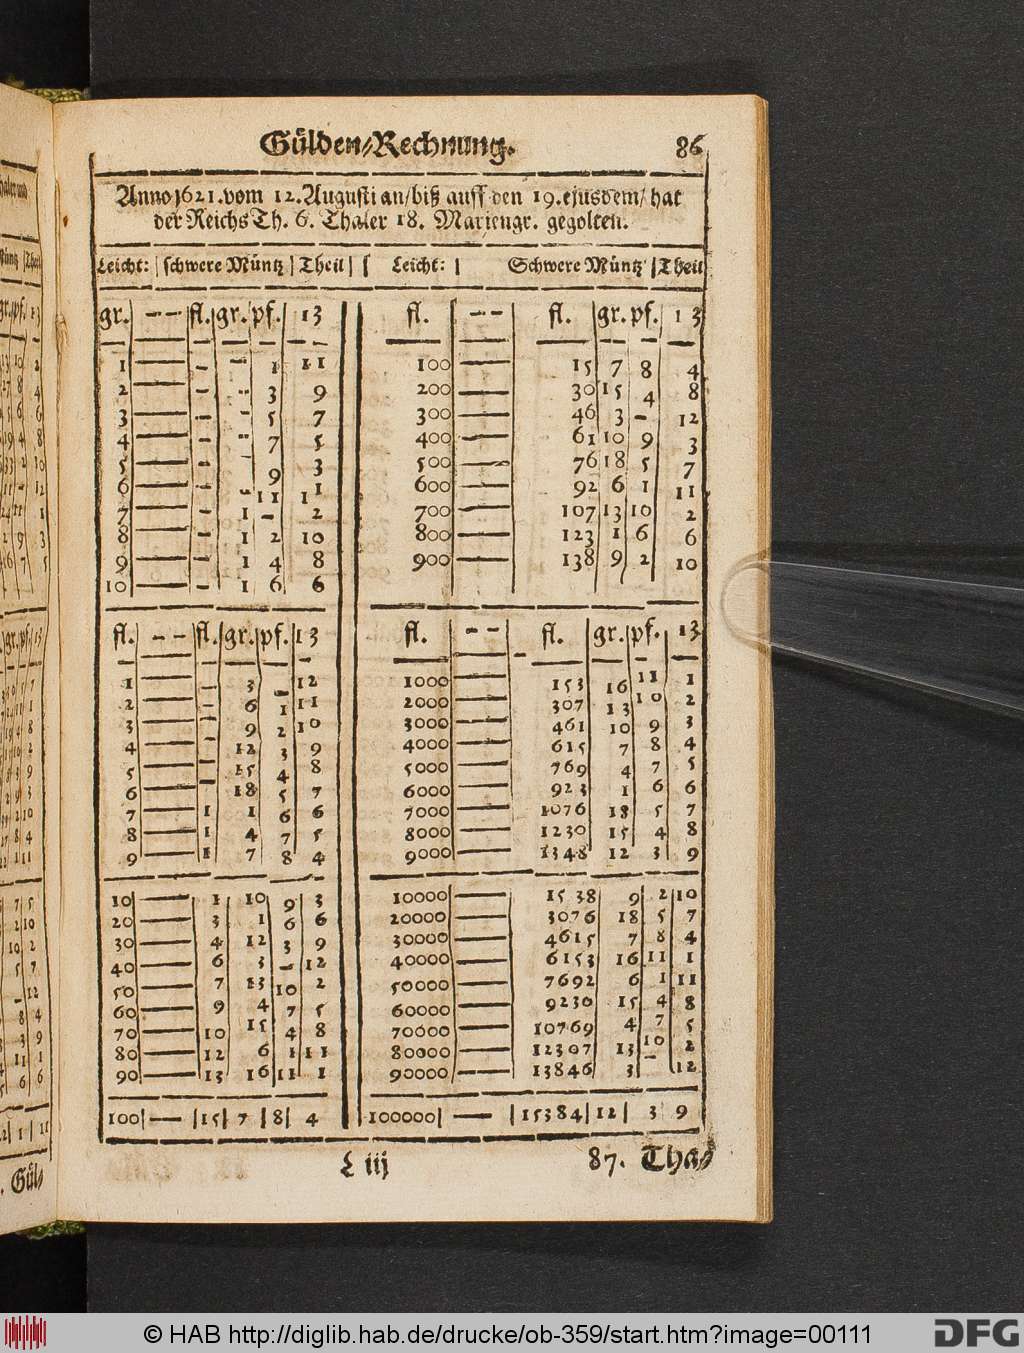 Gülden-Rechnung. 86
Anno 1621. vom 12. Augusti an/ biß auff den 19. ejusdem/ hat
der Reichs Th. 6. Thaler 18. Mariengr. gegolten.
Leicht: | schwere Müntz | Theil | | Leicht: | Schwere Müntz | Theil
gr. -- fl. gr. pf. 13
1 — - - 1 11
2 — - - 3 9
3 — - - 5 7
4 — - - 7 5
5 — - - 9 3
6 — - - 11 1
7 — - 1 - 2
8 — - 1 2 10
9 — - 1 4 8
10 — - 1 6 6
fl. -- fl. gr. pf. 13
1 — - 3 - 12
2 — - 6 1 11
3 — - 9 2 10
4 — - 12 3 9
5 — - 15 4 8
6 — - 18 5 7
7 — 1 1 6 6
8 — 1 4 7 5
9 — 1 7 8 4
10 — 1 10 9 3
20 — 3 1 6 6
30 — 4 12 3 9
40 — 6 3 - 12
50 — 7 13 10 2
60 — 9 4 7 5
70 — 10 15 4 8
80 — 12 6 1 11
90 — 13 16 11 1
100 — 15 7 8 4
fl. -- fl. gr. pf. 13
100 — 15 7 8 4
200 — 30 15 4 8
300 — 46 3 - 12
400 — 61 10 9 3
500 — 76 18 5 7
600 — 92 6 1 11
700 — 107 13 10 2
800 — 123 1 6 6
900 — 138 9 2 10
fl. -- fl. gr. pf. 13
1000 — 153 16 11 1
2000 — 307 13 10 2
3000 — 461 10 9 3
4000 — 615 7 8 4
5000 — 769 4 7 5
6000 — 923 1 6 6
7000 — 1076 18 5 7
8000 — 1230 15 4 8
9000 — 1348 12 3 9
10000 — 1538 9 2 10
20000 — 3076 18 5 7
30000 — 4615 7 8 4
40000 — 6153 16 11 1
50000 — 7692 6 1 11
60000 — 9230 15 4 8
70000 — 10769 4 7 5
80000 — 12307 13 10 2
90000 — 13846 3 - 12
100000 — 15384 12 3 9
L iij 87. Tha-
Gül-
© HAB http://diglib.hab.de/drucke/ob-359/start.htm?image=00111
DFG